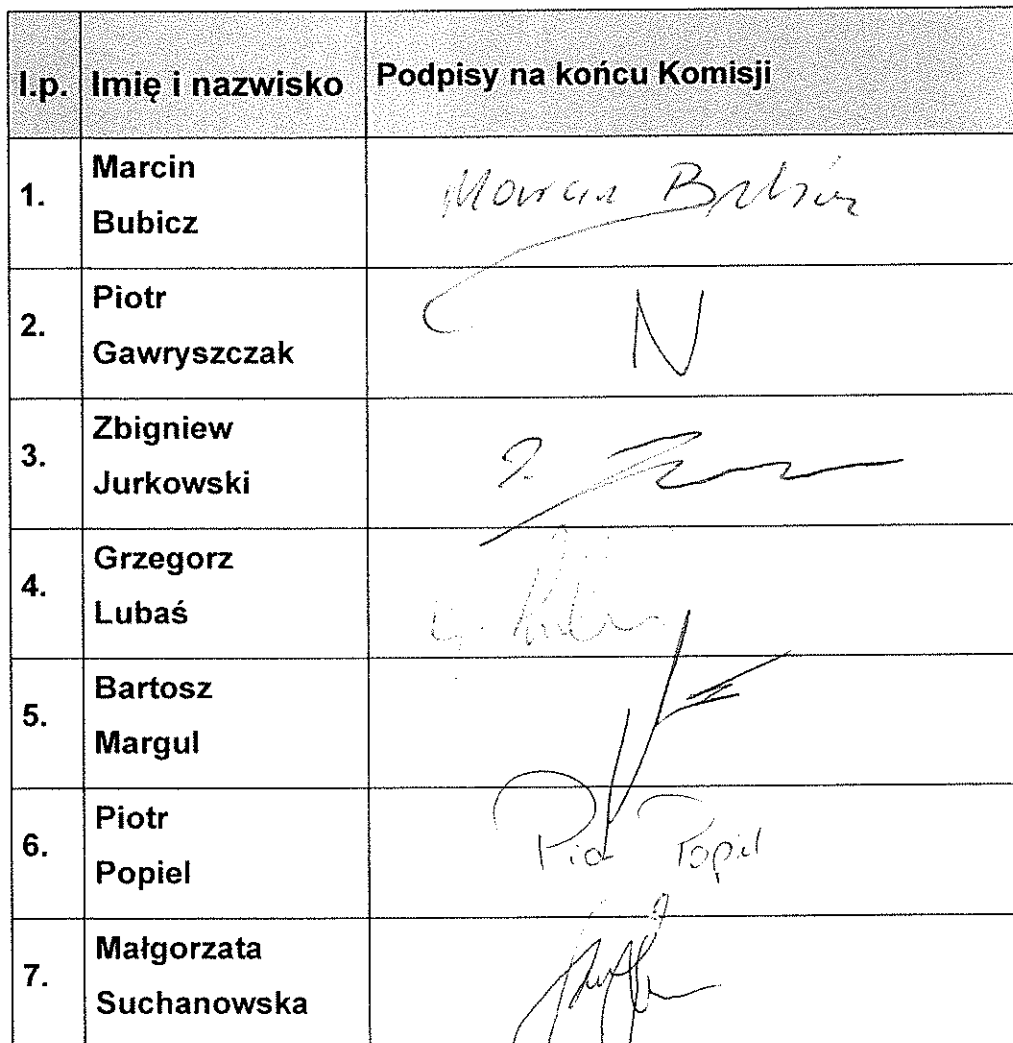 l.p. Imię i nazwisko Podpisy na końcu Komisji
1. Marcin Bubicz
Marcin
2. Piotr Gawryszczak
N
3. Zbigniew Jurkowski
4. Grzegorz Lubaś
5. Bartosz Margul
6. Piotr Popiel
Piotr Popiel
7. Małgorzata Suchanowska